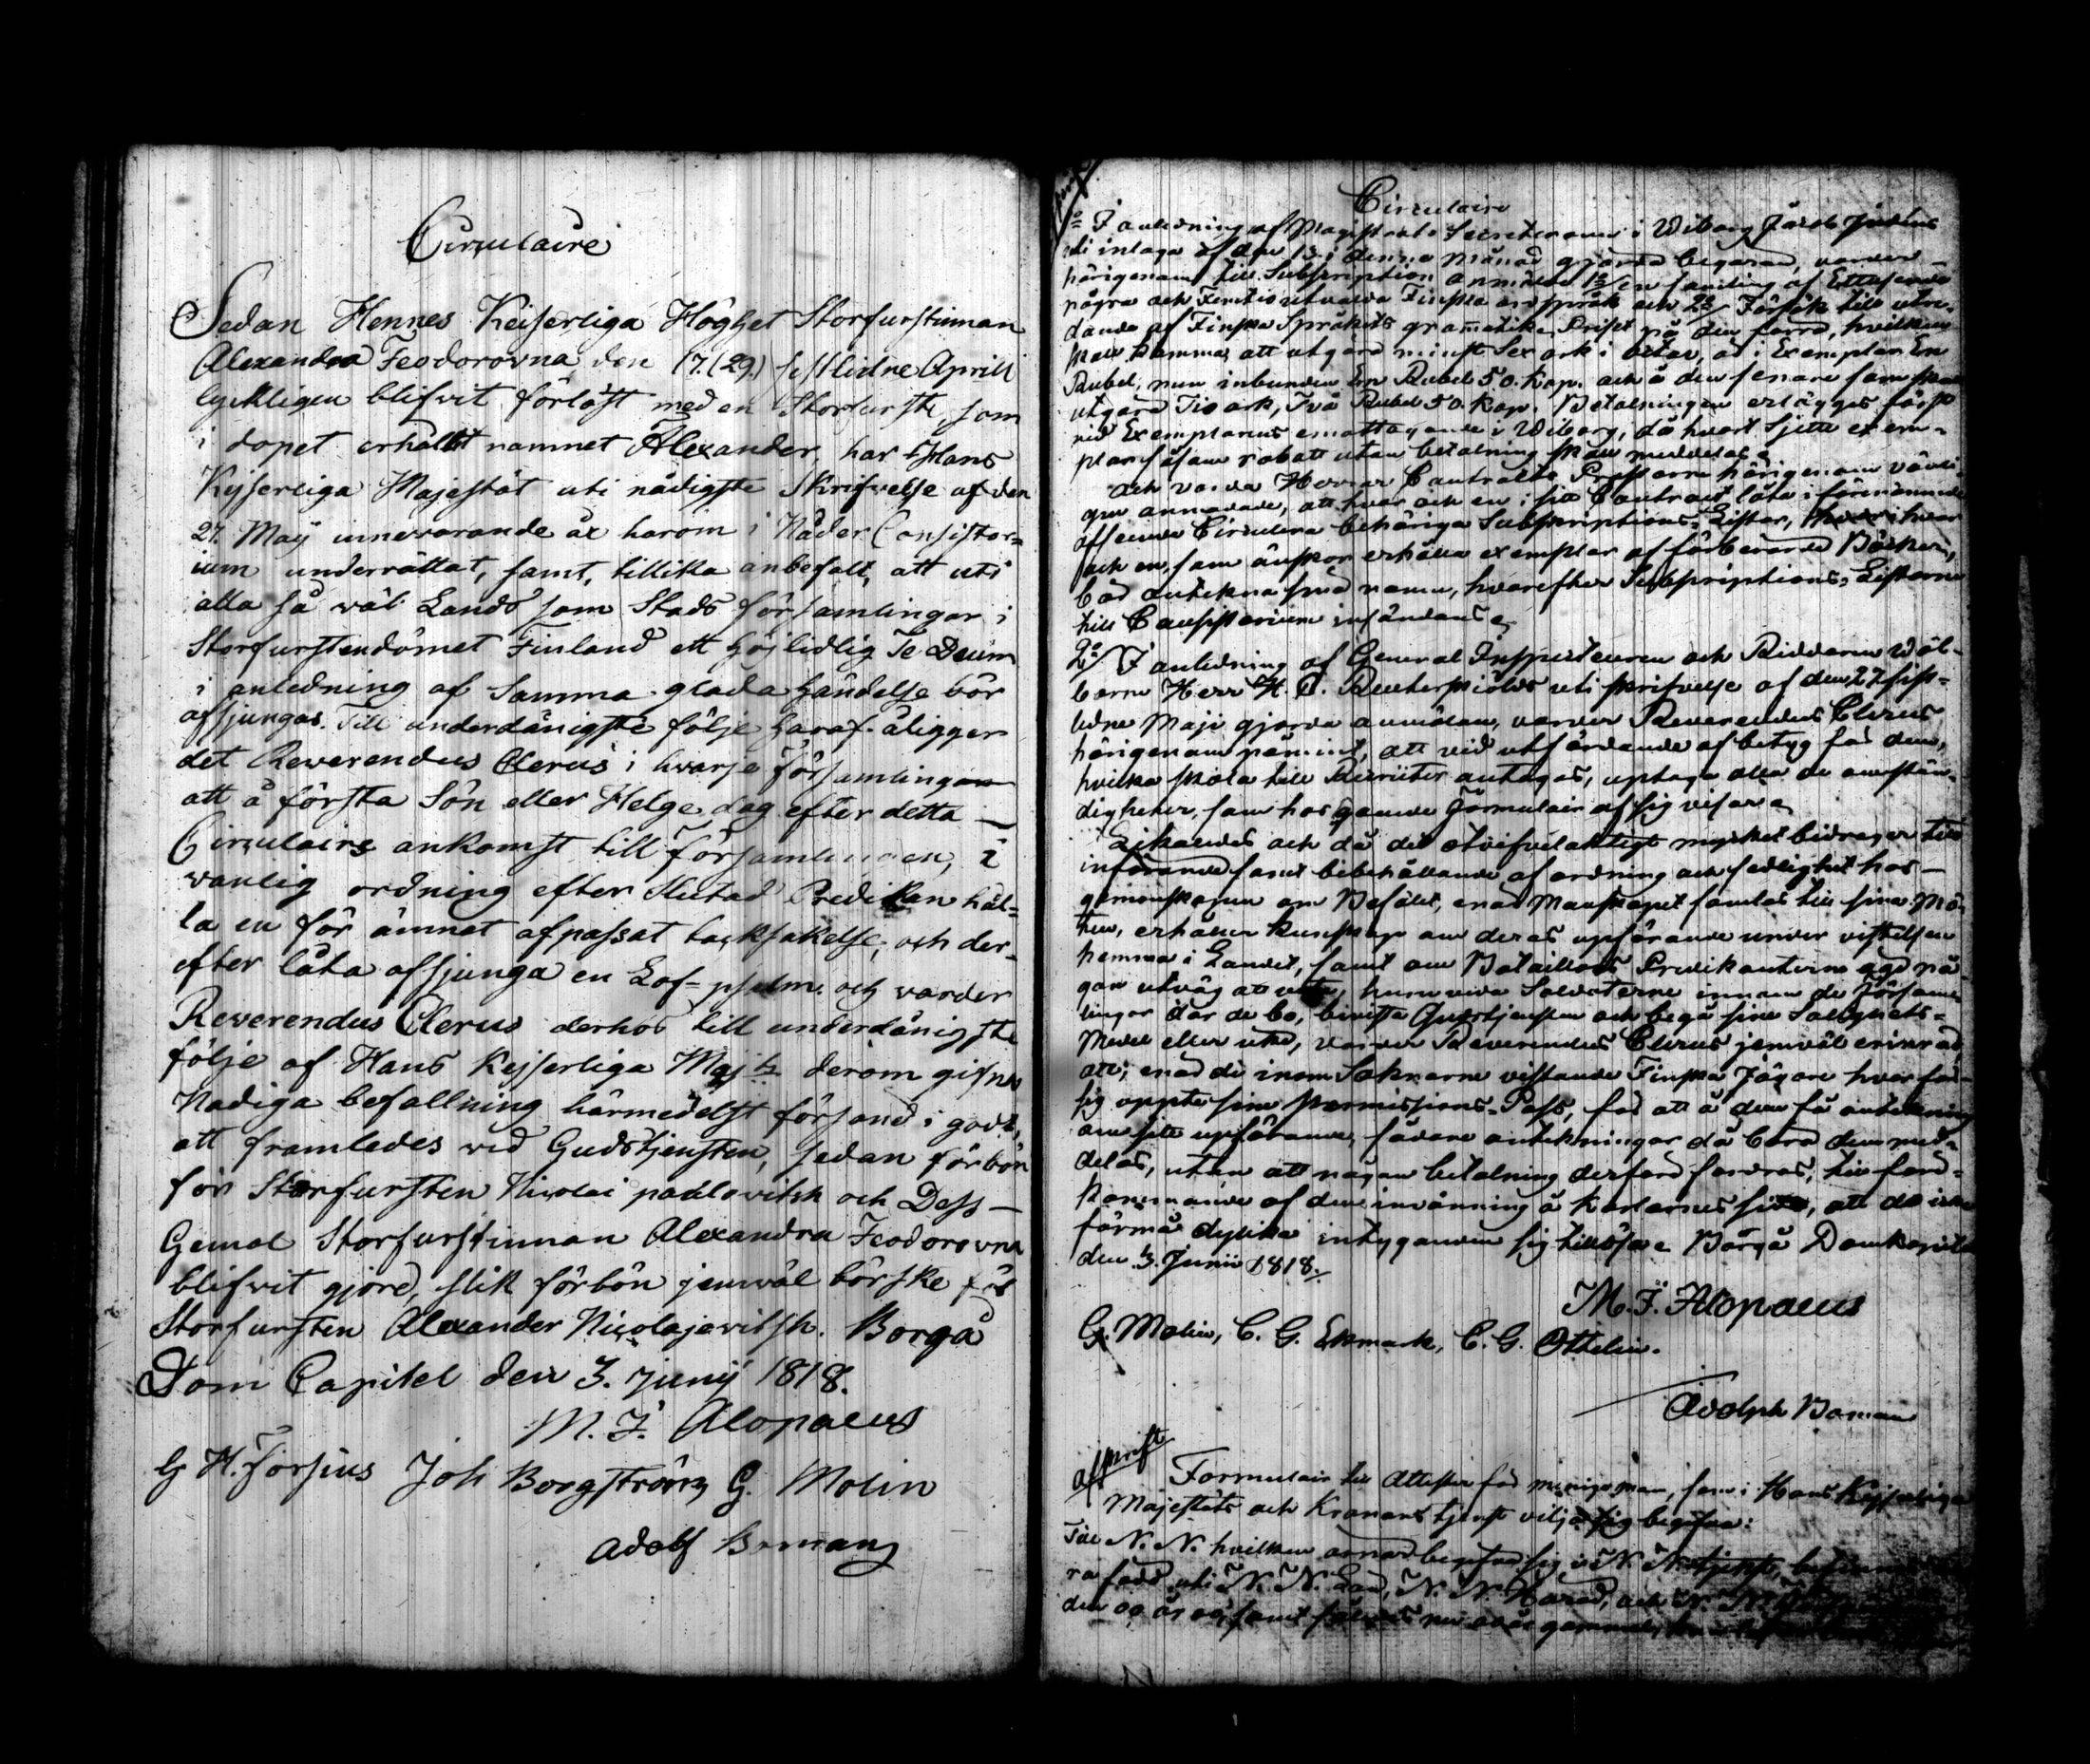 Circulaire
Sedan Hennes Keiserliga Höghet Storfurstinnan
Alexandra Feodorovna den 17.(29.) sistlidne Aprill
lyckligen blifvit förlöst med en Storfurste, som
i dopet erhållit namnet Alexander, har Hans
Kejserliga Majestät uti nådigste Skrifvelse af den
27. Maij innevarande år härom i Nåder Consistor=
ium underrättat, samt, tillika anbefalt, att uti
alla så väl Lands som Stads församlingar i
Storfurstendömet Finland ett högtidlig Te Deum
i anledning af Samma glada händelse bör
afsjungas. Till underdånigste följe häraf åligger
det Reverendus Clerus i hvarje församlingar
att å första Sön eller Helge dag efter detta —
Circulairs ankomst till församlingen, i
vanlig ordning efter slutad Predikan hål=
la en för ämnet afpassat tacksäkelse, och der=
efter låta afsjunga en Lof=psalm. och varder
Reverendus Clerus derhos till underdånigste
följe af Hans Kejserliga Maj:ts derom gifne
Nådiga befallning härmedelst försand i godt,
att framledes vid Gudstjensten, sedan förbön
för Storfursten Nicolai pavlovitsh och Dess —
Gemål Storfurstinnan Alexandra Feodorovna
blifvit gjord, slik förbön jemväl bör ske för
Storfursten Alexander Nicolajevitsh. Borgå
Dom Capitel den 3. junij 1818.
M. J. Alopaeus
G H. Forsius Joh Borgström G. Molin
Adolf Boman
Circulaire
1o I anledning af Magistrats Secreteraren i Wiborg Jacob Judéns
uti inlaga af den 13. i denna månad gjorda begäran, varder
härigenom till Subscription anmäldt 1o/ en samling af Ettusende
några och Femtio utvalda Finska ordspråk och 2o/ Försök till utre=
dande af Finska Språkets gramatik. Priset på den förra, hvilken
skall komma att utgöra minst Sex ark i octav, är i Exemplar En
Rubel, men inbunden En Rubel 50. Kop. och å den senare som skall
utgöra Tio ark, Två Rubel 50. Kop. Betalningen erlägges först
vid Exemplarens emottagande i Wiborg, då hvart Sjette exem=
plar såsom rabatt utan betalning skall meddelas.
Och varda Herrar Contracts Prostarne härigenom vänli=
gen anmodade, att hvar och en i sitt Contract låta i förenämnde
afseende Circulera behöriga Subscriptions=Listor, hvar
och en, som önskar erhålla exemplar af förberörde Böcker,
bör anteckna sine namn, hvarefter Subscriptions=Listorne
till Consistorium insändas.
2o/ I anledning af General Inspecteuren och Riddaren Wäl=
borne Herr H. O. Reuterskiölds uti skrifvelse af den 27 sist=
ledne Maji gjorda anmälan, varder Reverendus Clerus
härigenom påmint, att vid utfärdande af betyg för dem,
hvilka skola till Recruiter antagas, uptaga alla de omstän=
digheter, som hos gående Formulair af sig visar.
Likaledes och då det otvifvelaktigt mycket bidrager till
införande samt bibehållande af ordning och sedlighet hos —
gemenskapen om Befälet, enär Manskapet samlas till sine Mö=
ten, erhåller kunskap om deras upförande under vistelsen
hemma i Landet, samt om Bataillons Predikanterne ega nå=
gon utväg att veta, huruvida Soldaterne innom de församl=
lingar der de bo, bivista Gudstjensten och begå sine Salighets=
medel eller icke, varder Reverendus Clerus jemväl erinrad
att, enär de inom Soknarne vistande Finska Jägare hvar för
sig uppte sine Permissions=Pass, för att å dem få anteckning
om sitt upförande, sådane anteckningar då böra dem med=
delas, utan att någon betalning derföre fordras, till före=
kommande af den invänning å Karlarnes sida, att de icke
förmå dylika intyganden sig tillösa. Borgå Domkapitel
den 3. Junii 1818.
M. J. Alopaeus
G. Molin, C. G. Ekmark, C. G. Ottelin.
Adolph Boman
afskrift
Formulair till Attester för menige man, som i Hans Kejserliga
Majestäts och Kronans tjenst vilja sig begifva:
Till N. N. hvilken ärnar begifva sig i N. N. tjenst,
ra född uti N. N. Län, N. N. Härad, och N. N.
den 00 år 00, samt således nu 00 år gammal,